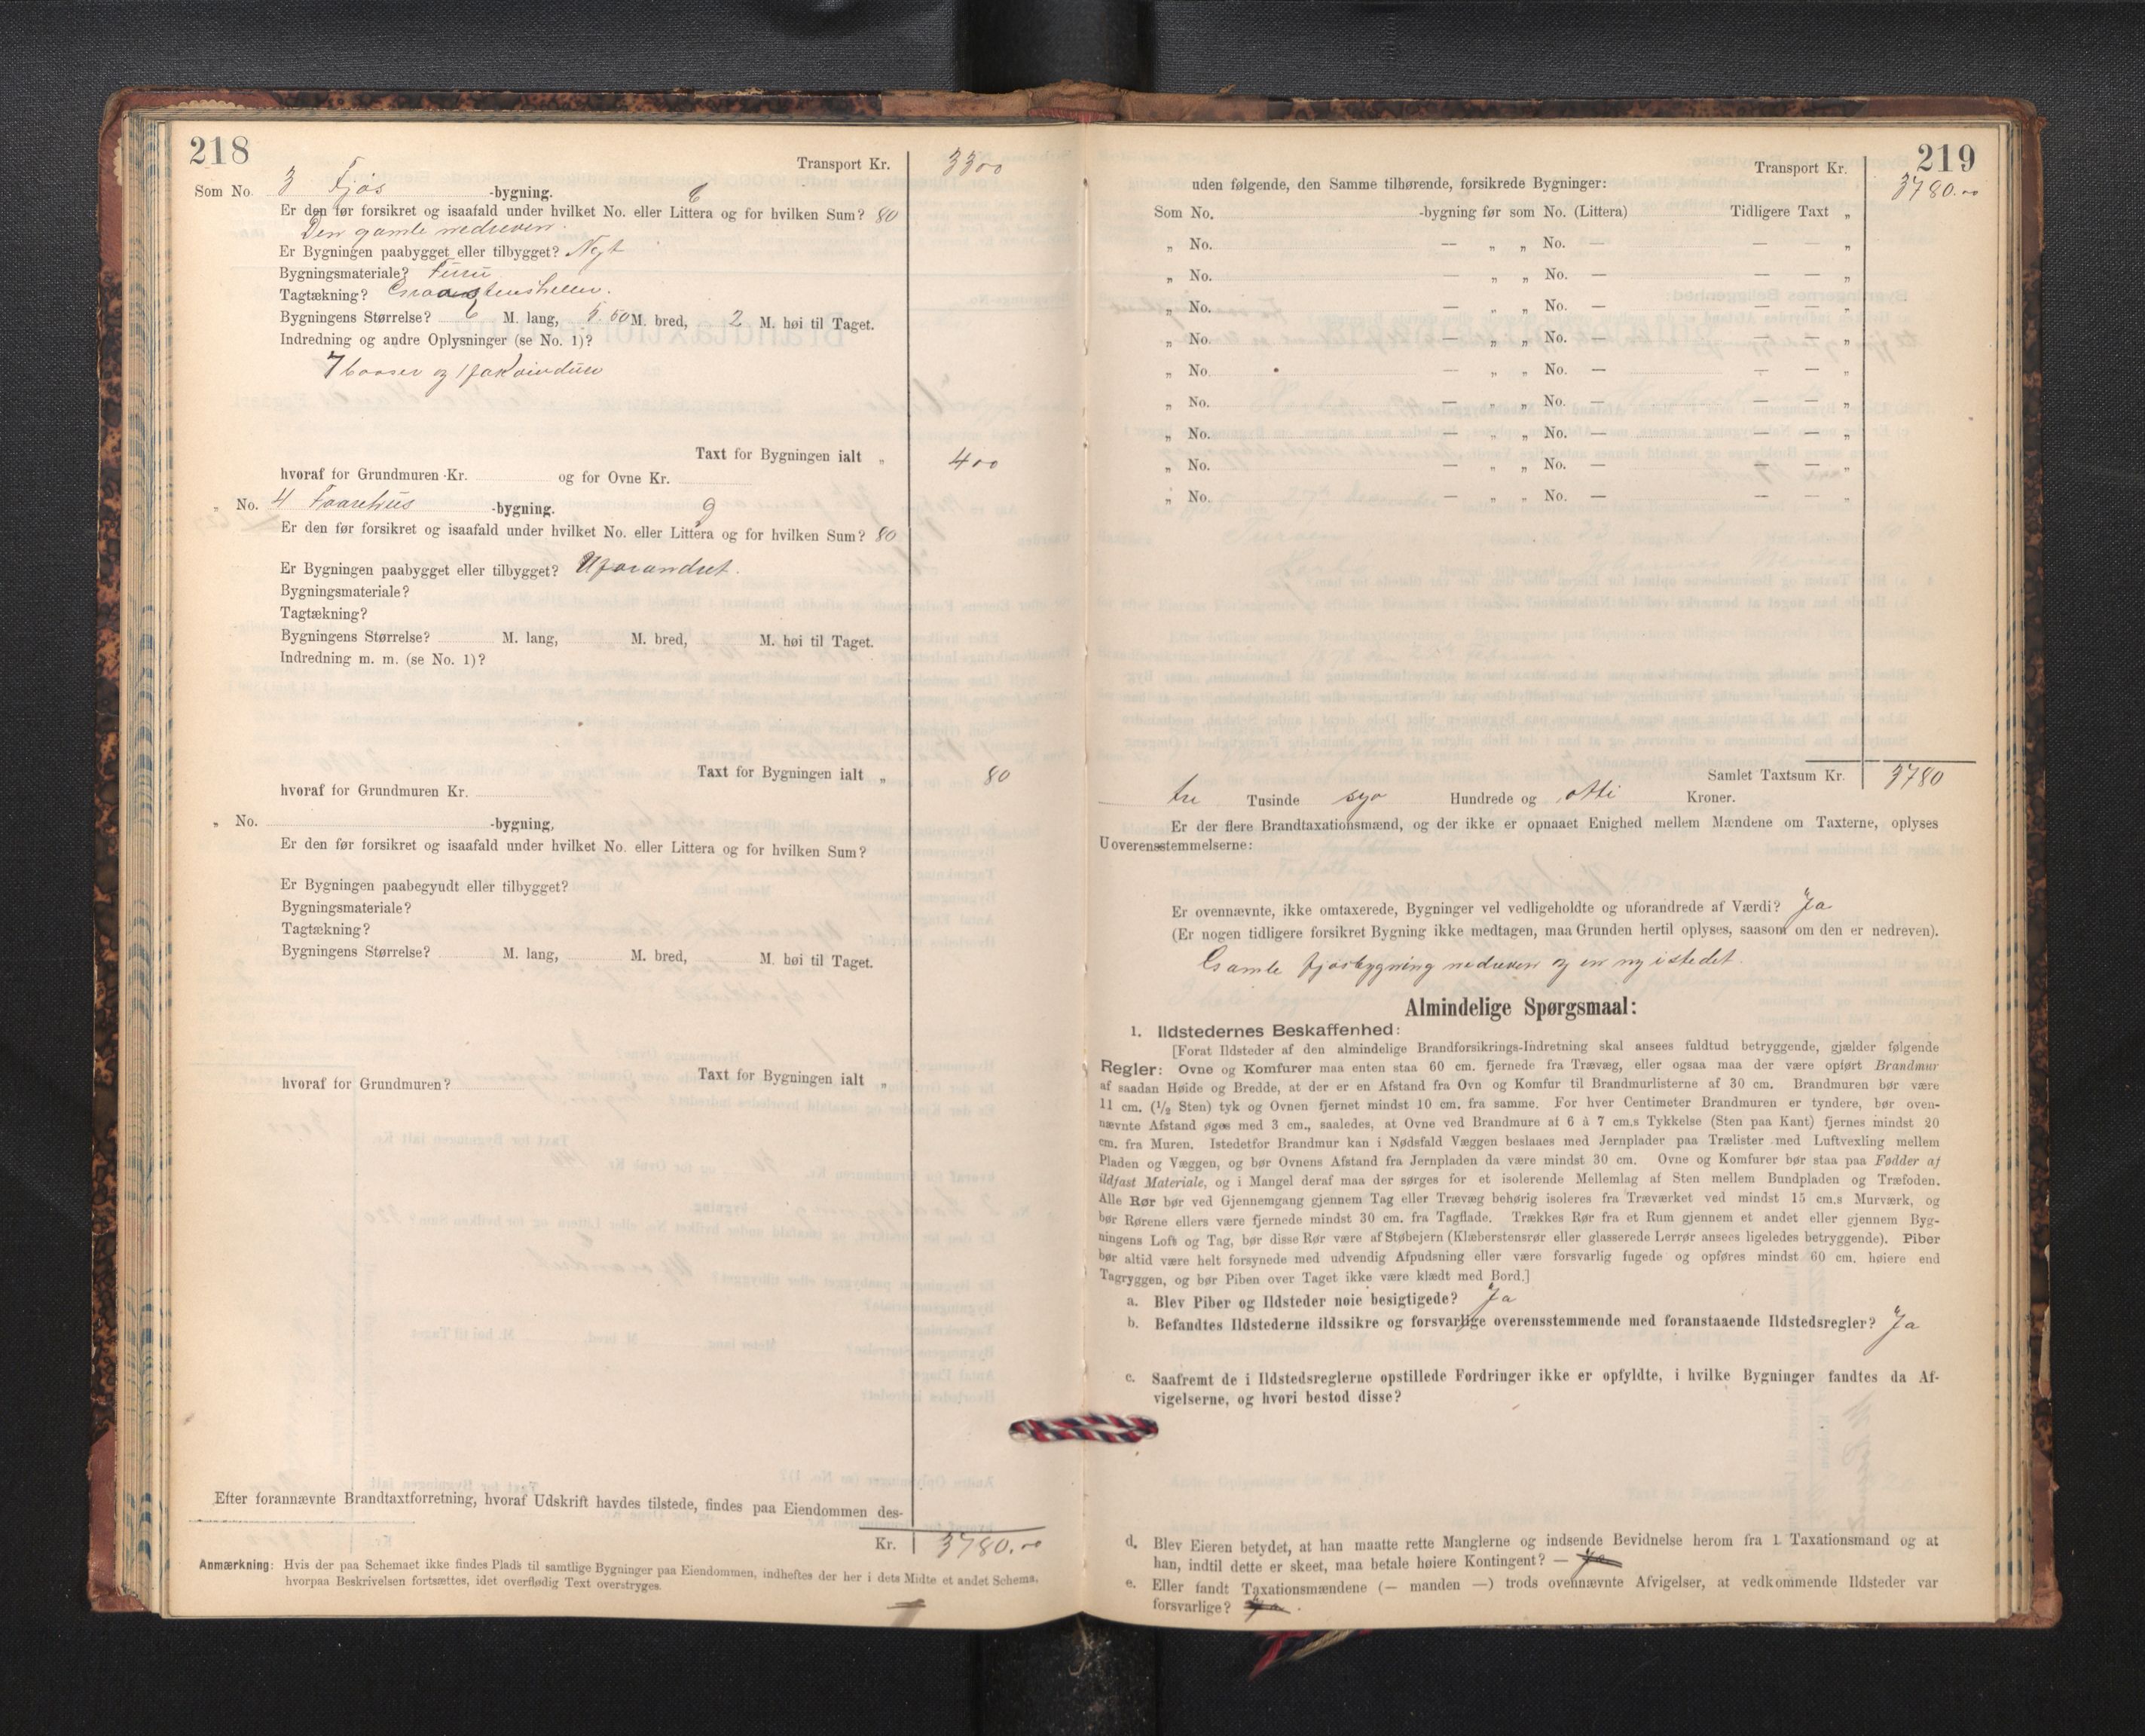 218
Transport Kr. 3300
Som No. 3 Fjøs -bygning. C
Er den før forsikret og isaafald under hvilket No. eller Littera og for hvilken Sum? 80
Den gamle nedreven.
Er Bygningen paabygget eller tilbygget? Nyt
Bygningsmateriale? Furu
Tagtækning? Graastenshellen.
Bygningens Størrelse? 6 M. lang, 5.50 M. bred, 2 M. høi til Taget.
Indredning og andre Oplysninger (se No. 1)?
7 baaser og 1
Taxt for Bygningen ialt „ 400
hvoraf for Grundmuren Kr. og for Ovne Kr.
„ No. 4 Faarehus -bygning. 9
Er den før forsikret og isaafald under hvilket No. eller Littera og for hvilken Sum? 80
Er Bygningen paabygget eller tilbygget? Uforandret.
Bygningsmateriale?
Tagtækning?
Bygningens Størrelse? M. lang, M. bred, M. høi til Taget.
Indredning m. m. (se No. 1)?
Taxt for Bygningen ialt „ 80
hvoraf for Grundmuren Kr.
„ No. -bygning,
Er den før forsikret og isaafald under hvilket No. eller Littera og for hvilken Sum?
Er Bygningen paabegyndt eller tilbygget?
Bygningsmateriale?
Tagtækning?
Bygningens Størrelse? M. lang, M. bred, M. høi til Taget.
Taxt for Bygningen ialt „
hvoraf for Grundmuren?
Efter forannævnte Brandtaxtforretning, hvoraf Udskrift havdes tilstede, findes paa Eiendommen des-
Kr. 3780.00
Anmærkning: Hvis der paa Schemaet ikke findes Plads til samtlige Bygninger paa Eiendommen, indheftes der her i dets Midte et andet Schema,
hvorpaa Beskrivelsen fortsættes, idet overflødig Text overstryges.
219
Transport Kr. 3780.00
uden følgende, den Samme tilhørende, forsikrede Bygninger:
Som No. -bygning før som No. (Littera) Tidligere Taxt „
„ No. — „ „ No. — — — „
„ No. — „ „ No. — — — „
„ No. — „ „ No. — — — „
„ No. — „ „ No. — — — „
„ No. — „ „ No. — — — „
„ No. — „ „ No. — — — „
„ No. — „ „ No. — — — „
„ No. — „ „ No. — — — „
„ No. — „ „ No. — — — „
Samlet Taxtsum Kr. 3780
tre Tusinde syv Hundrede og otti Kroner.
Er der flere Brandtaxationsmænd, og der ikke er opnaaet Enighed mellem Mændene om Taxterne, oplyses
Uoverensstemmelserne:
Er ovennævnte, ikke omtaxerede, Bygninger vel vedligeholdte og uforandrede af Værdi? Ja
(Er nogen tidligere forsikret Bygning ikke medtagen, maa Grunden hertil oplyses, saasom om den er nedreven).
Gamle fjøsbygning nedreven og en ny istedet.
Almindelige Spørgsmaal:
1. Ildstedernes Beskaffenhed:
[Forat Ildsteder af den almindelige Brandforsikrings-Indretning skal ansees fuldtud betryggende, gjælder følgende
Regler: Ovne og Komfurer maa enten staa 60 cm. fjernede fra Trævæg, eller ogsaa maa der være opført Brandmur
af saadan Høide og Bredde, at der er en Afstand fra Ovn og Komfur til Brandmurlisterne af 30 cm. Brandmuren bør være
11 cm. (1/2 Sten) tyk og Ovnen fjernet mindst 10 cm. fra samme. For hver Centimeter Brandmuren er tyndere, bør oven-
nævnte Afstand øges med 3 cm., saaledes, at Ovne ved Brandmure af 6 à 7 cm.s Tykkelse (Sten paa Kant) fjernes mindst 20
cm. fra Muren. Istedetfor Brandmur kan i Nødsfald Væggen beslaaes med Jernplader paa Trælister med Luftvexling mellem
Pladen og Væggen, og bør Ovnens Afstand fra Jernpladen da være mindst 30 cm. Ovne og Komfurer bør staa paa Fødder af
ildfast Materiale, og i Mangel deraf maa der sørges for et isolerende Mellemlag af Sten mellem Bundpladen og Træfoden.
Alle Rør bør ved Gjennemgang gjennem Tag eller Trævæg behørig isoleres fra Træværket ved mindst 15 cm.s Murværk, og
bør Rørene ellers være fjernede mindst 30 cm. fra Tagflade. Trækkes Rør fra et Rum gjennem et andet eller gjennem Byg-
ningens Loft og Tag, bør disse Rør være af Støbejern (Klæberstensrør eller glasserede Lerrør ansees ligeledes betryggende). Piber
bør altid være helt forsynede med udvendig Afpudsning eller være forsvarlig fugede og opføres mindst 60 cm. høiere end
Tagryggen, og bør Piben over Taget ikke være klædt med Bord.]
a. Blev Piber og Ildsteder noie besigtigede? Ja
b. Befandtes Ildstederne ildssikre og forsvarlige overensstemmende med foranstaaende Ildstedsregler? Ja
c. Saafremt de i Ildstedsreglerne opstillede Fordringer ikke er opfyldte, i hvilke Bygninger fandtes da Af-
vigelserne, og hvori bestod disse?
d. Blev Eieren betydet, at han maatte rette Manglerne og indsende Bevidnelse herom fra 1. Taxationsmand og at
han, indtil dette er skeet, maa betale høiere Kontingent? — Ja
e. Eller fandt Taxationsmændene (— manden —) trods ovennævnte Afvigelser, at vedkommende Ildsteder var
forsvarlige? Ja.